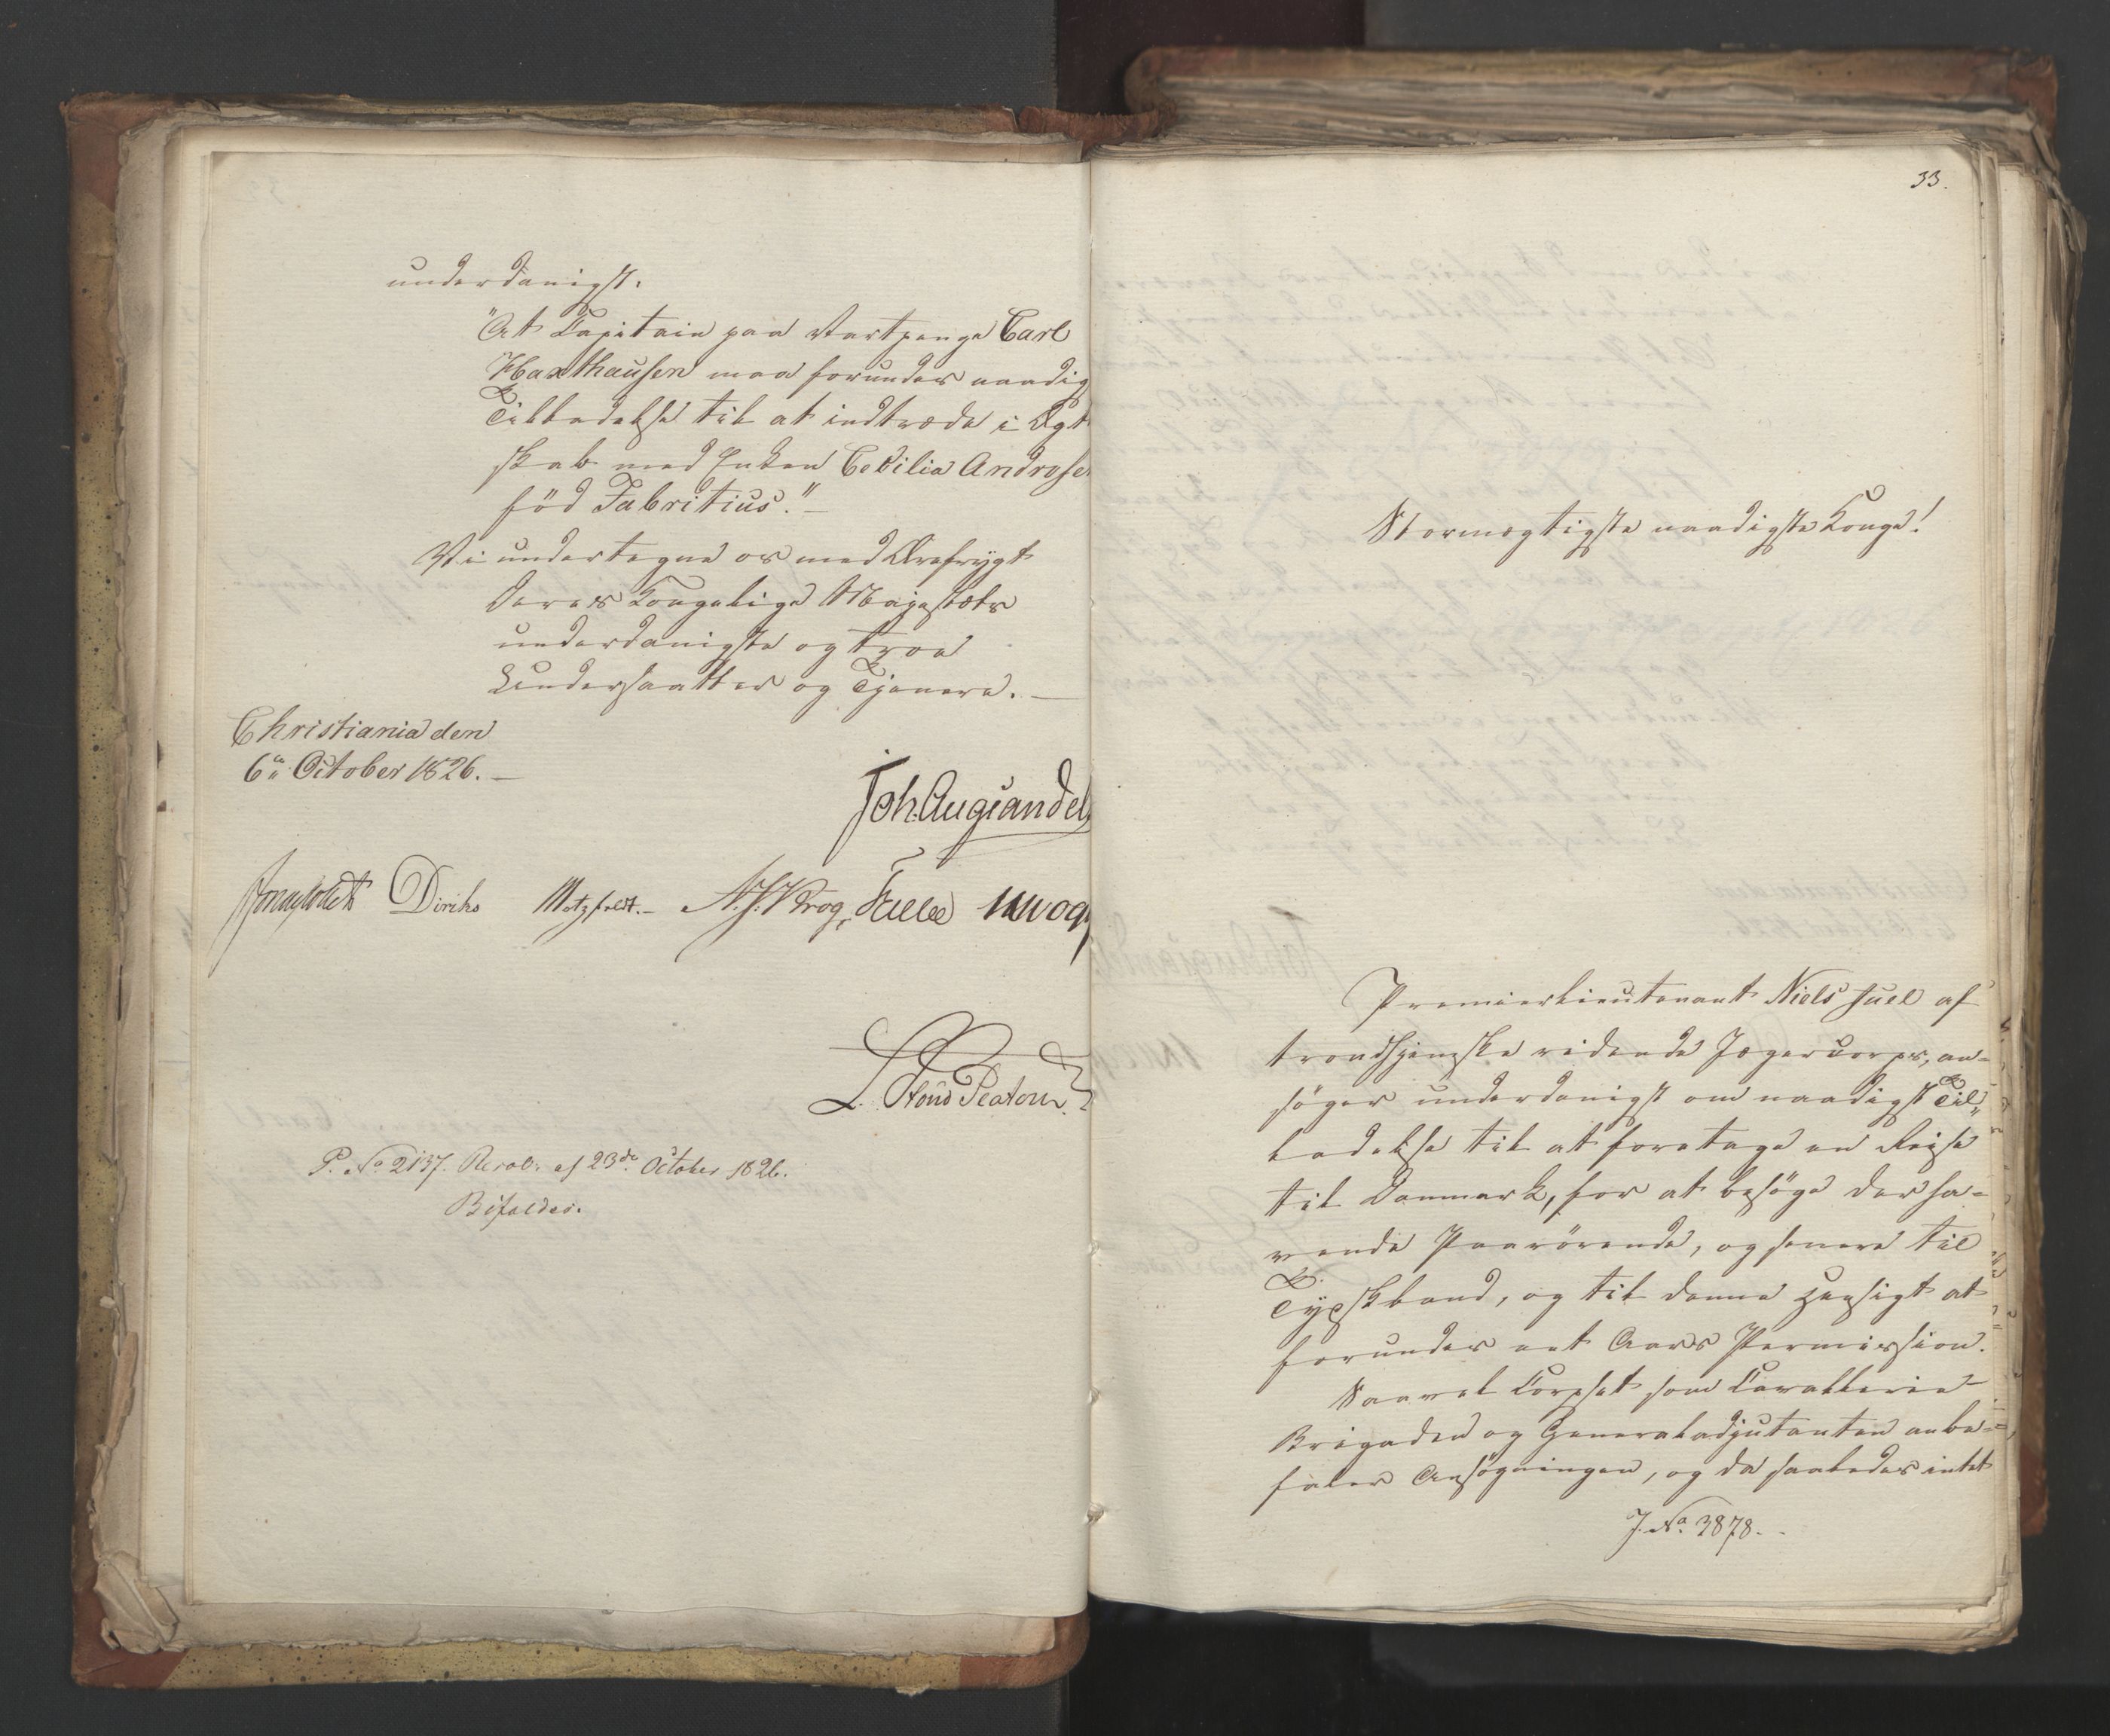 underdanigst:
"At Capitain paa Vartpenge Carl
Haxthausen maa forundes naadig
Tilladelse til at indtræde i Ægte
skab med Enken Cecilia Androse
föd Fabritius."-
Vi undertegne os med Ærefrygt
Deres Kongelige Majestæts
underdanigste og troe
Undersaatter og Tjenere. -
Christiania den
6te October 1826. -
Joh. Aug. Sandels
Jonas Collett Diriks Motzfeldt.- N. J. Krog, Falbe
L. Stoud Platou
P. No 2137. Resol. af 23de October 1826.
Bifaldes.
33.
Stormægtigste naadigste Konge!
Premierlieutenant Niels Juel af
trondhjemske ridende Jægercorps, an-
söger underdanigst om naadigst Til-
ladelse til at foretage en Reise
til Danmark, for at besöge der ha-
vende Paarörende, og senere til
Tydskland, og til denne Hensigt at
forundes eet Aars Permission.
Saavel Corpset som Cavallerie-
Brigaden og Generaladjutanten anbe-
faler Ansögningen, og da saaledes intet
J. No. 3878.-